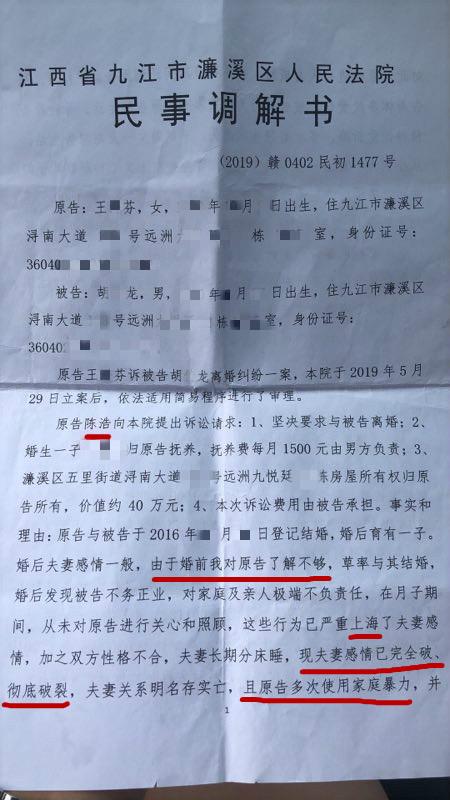 江西省九江市濂溪区人民法院
民事调解书
（2019）赣0402民初1477号
原告：王 芬，女， 年 月 日出生，住九江市濂溪区
浔南大道 号远洲 栋 室，身份证号：
36040
被告：胡 龙，男， 年 月 日出生，住九江市濂溪区
浔南大道 号远洲 栋 室，身份证号：
360402
原告王 芬诉被告胡 龙离婚纠纷一案，本院于2019年5月
29日立案后，依法适用简易程序进行了审理。
原告陈浩向本院提出诉讼请求：1、坚决要求与被告离婚；2、
婚生一子 归原告抚养，抚养费每月1500元由男方负责；3、
濂溪区五里街道浔南大道 号远洲九悦廷 栋房屋所有权归原
告所有，价值约40万元；4、本次诉讼费用由被告承担。事实和
理由：原告与被告于2016年 月 日登记结婚，婚后育有一子。
婚后夫妻感情一般，由于婚前我对原告了解不够，草率与其结婚，
婚后发现被告不务正业，对家庭及亲人极端不负责任，在月子期
间，从未对原告进行关心和照顾，这些行为已严重上海了夫妻感
情，加之双方性格不合，夫妻长期分床睡，现夫妻感情已完全破、
彻底破裂，夫妻关系明名存实亡，且原告多次使用家庭暴力，并
1